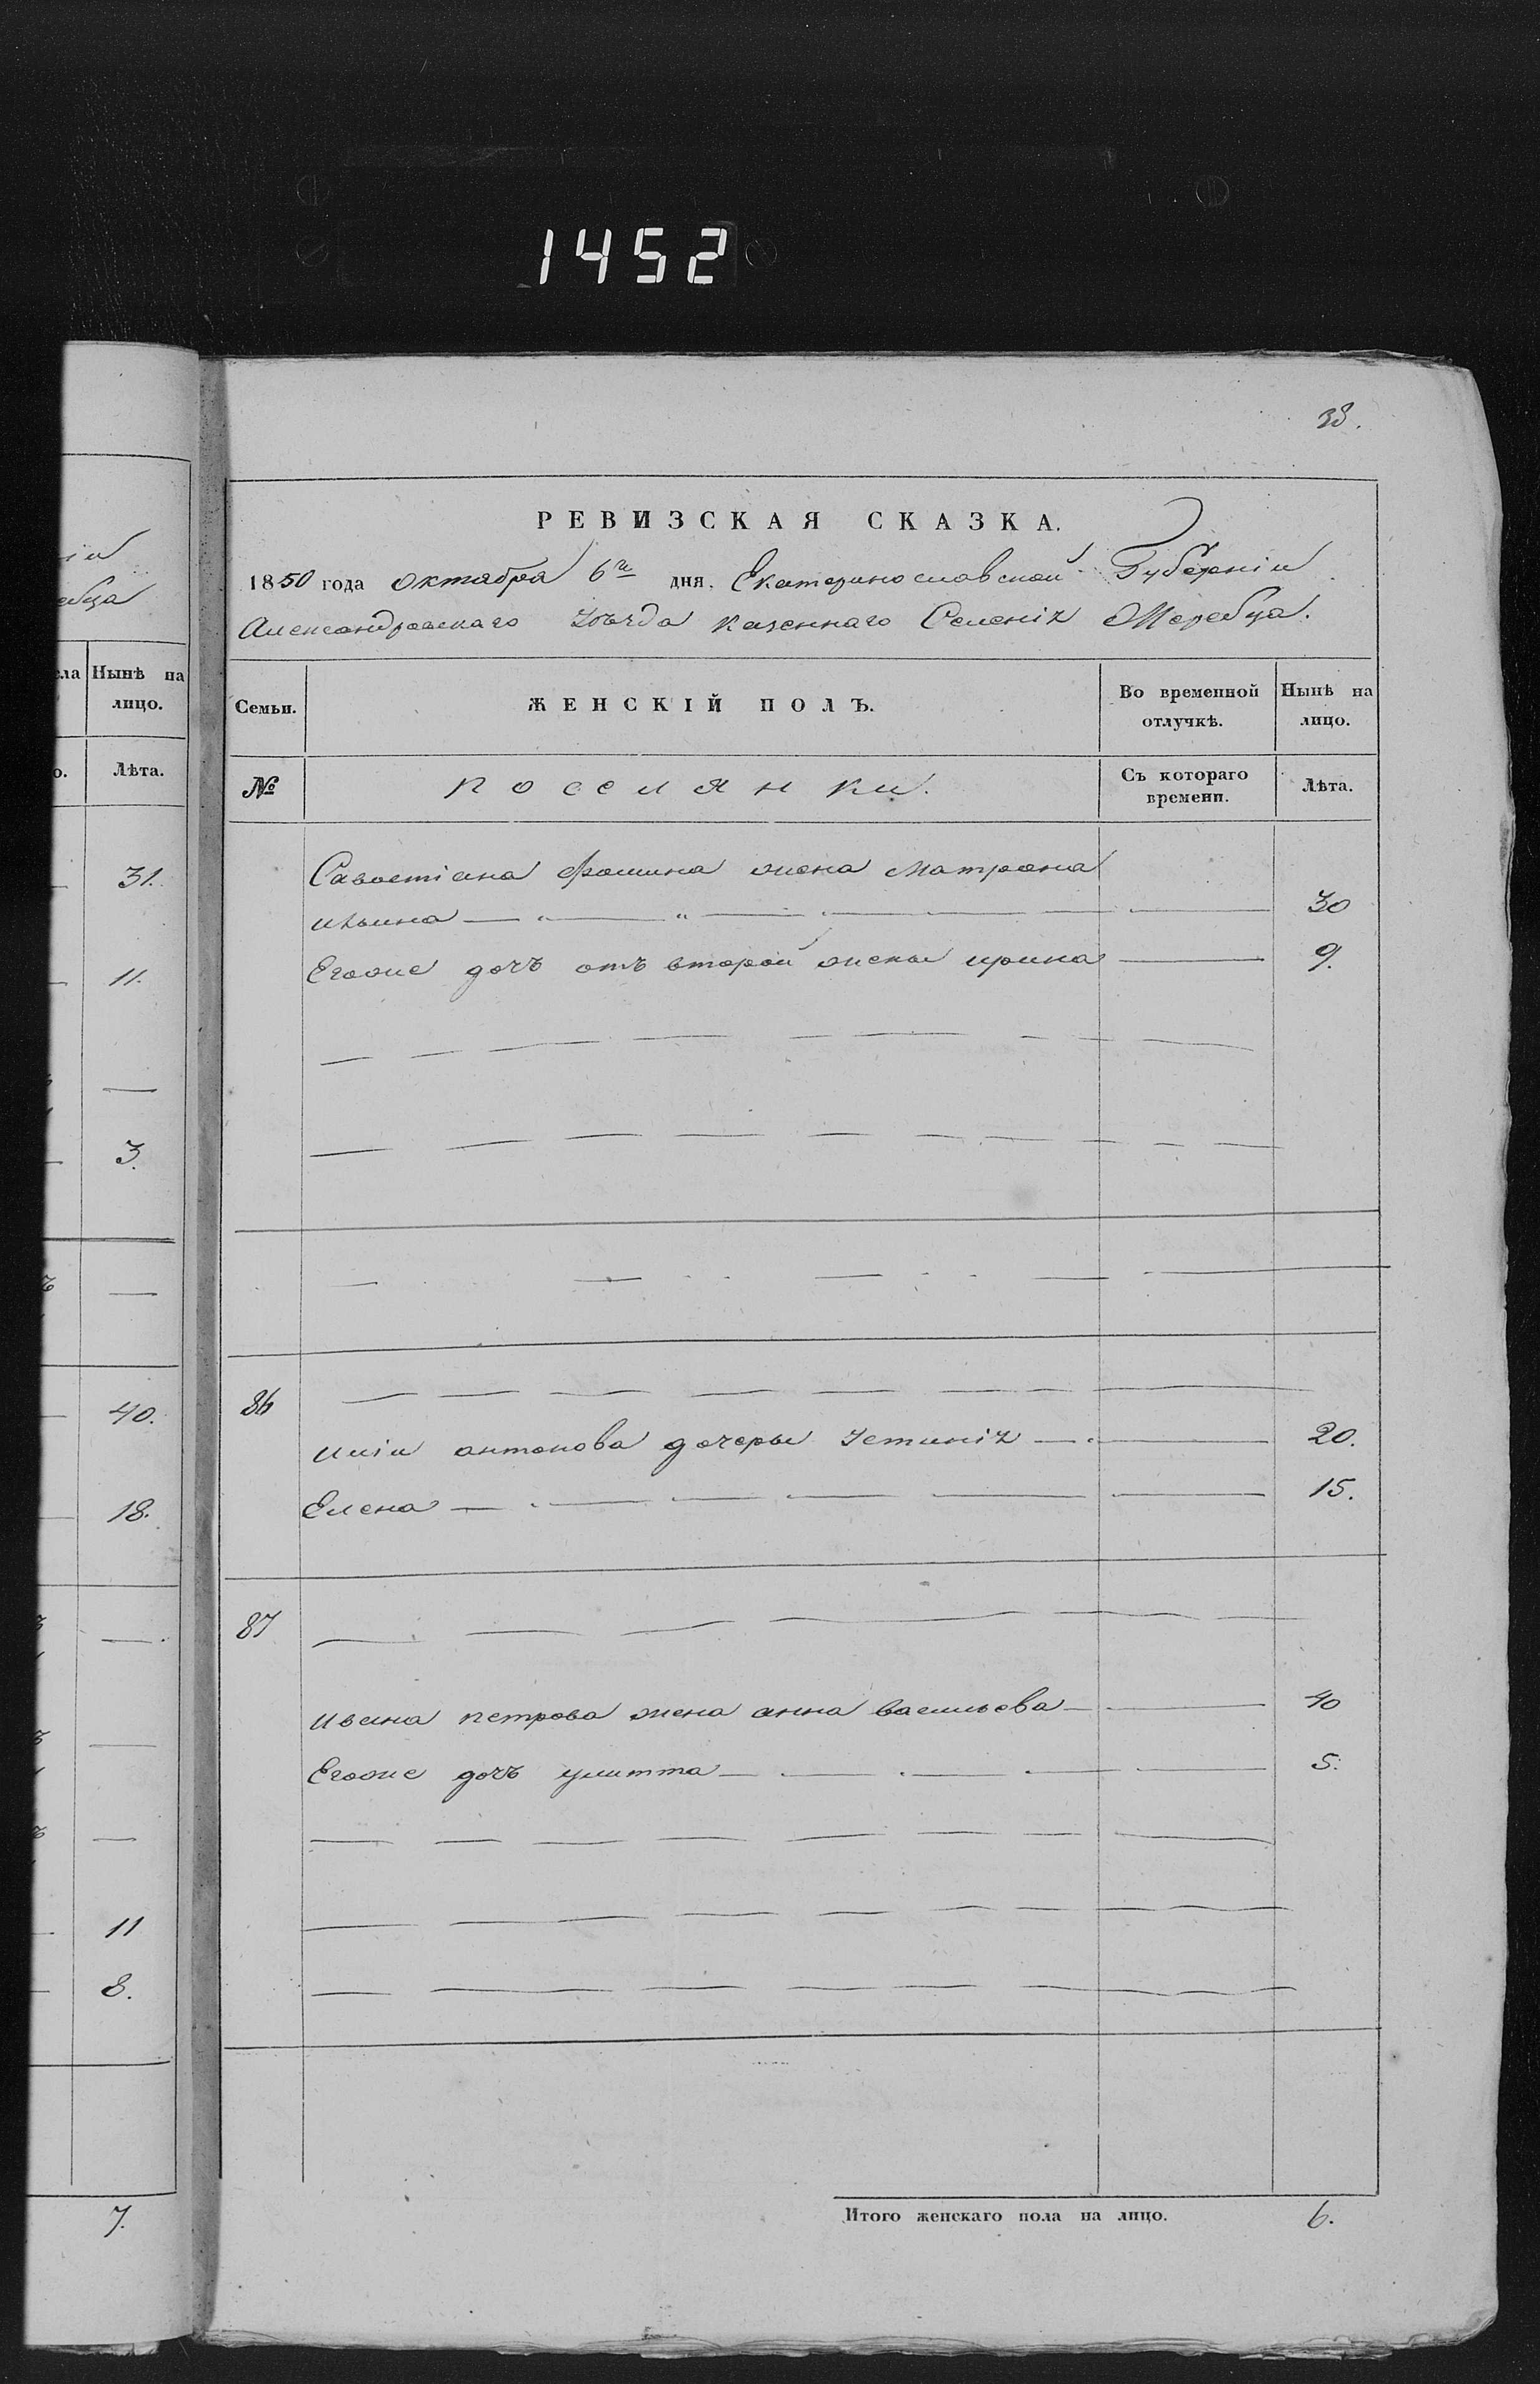 1452
38.
РЕВИЗСКАЯ СКАЗКА.
1850 года октября 6го дня. Екатеринославской Губерніи
Александровскаго Уѣзда казеннаго Селенія Жеребца.
Семьи.
ЖЕНСКІЙ ПОЛЪ.
Во временной отлучкѣ.
Нынѣ на лицо.
№
поселянки.
Съ котораго времени.
Лѣта.
Савостіана Фомина жена Матрона
Ильина — „ — „ — 30
Егоже дочъ отъ второй жены ирина — 9.
86
Илiи антонова дочеры Устинія — 20.
Елена — 15.
87
Ивана петрова жена анна васильева — 40
Егоже дочъ улитта — 5.
Итого женскаго пола на лицо. 6.
іи
ебца
ела
Нынѣ на
лицо.
о.
Лѣта.
31.
11.
3.
40.
18.
11
8.
7.